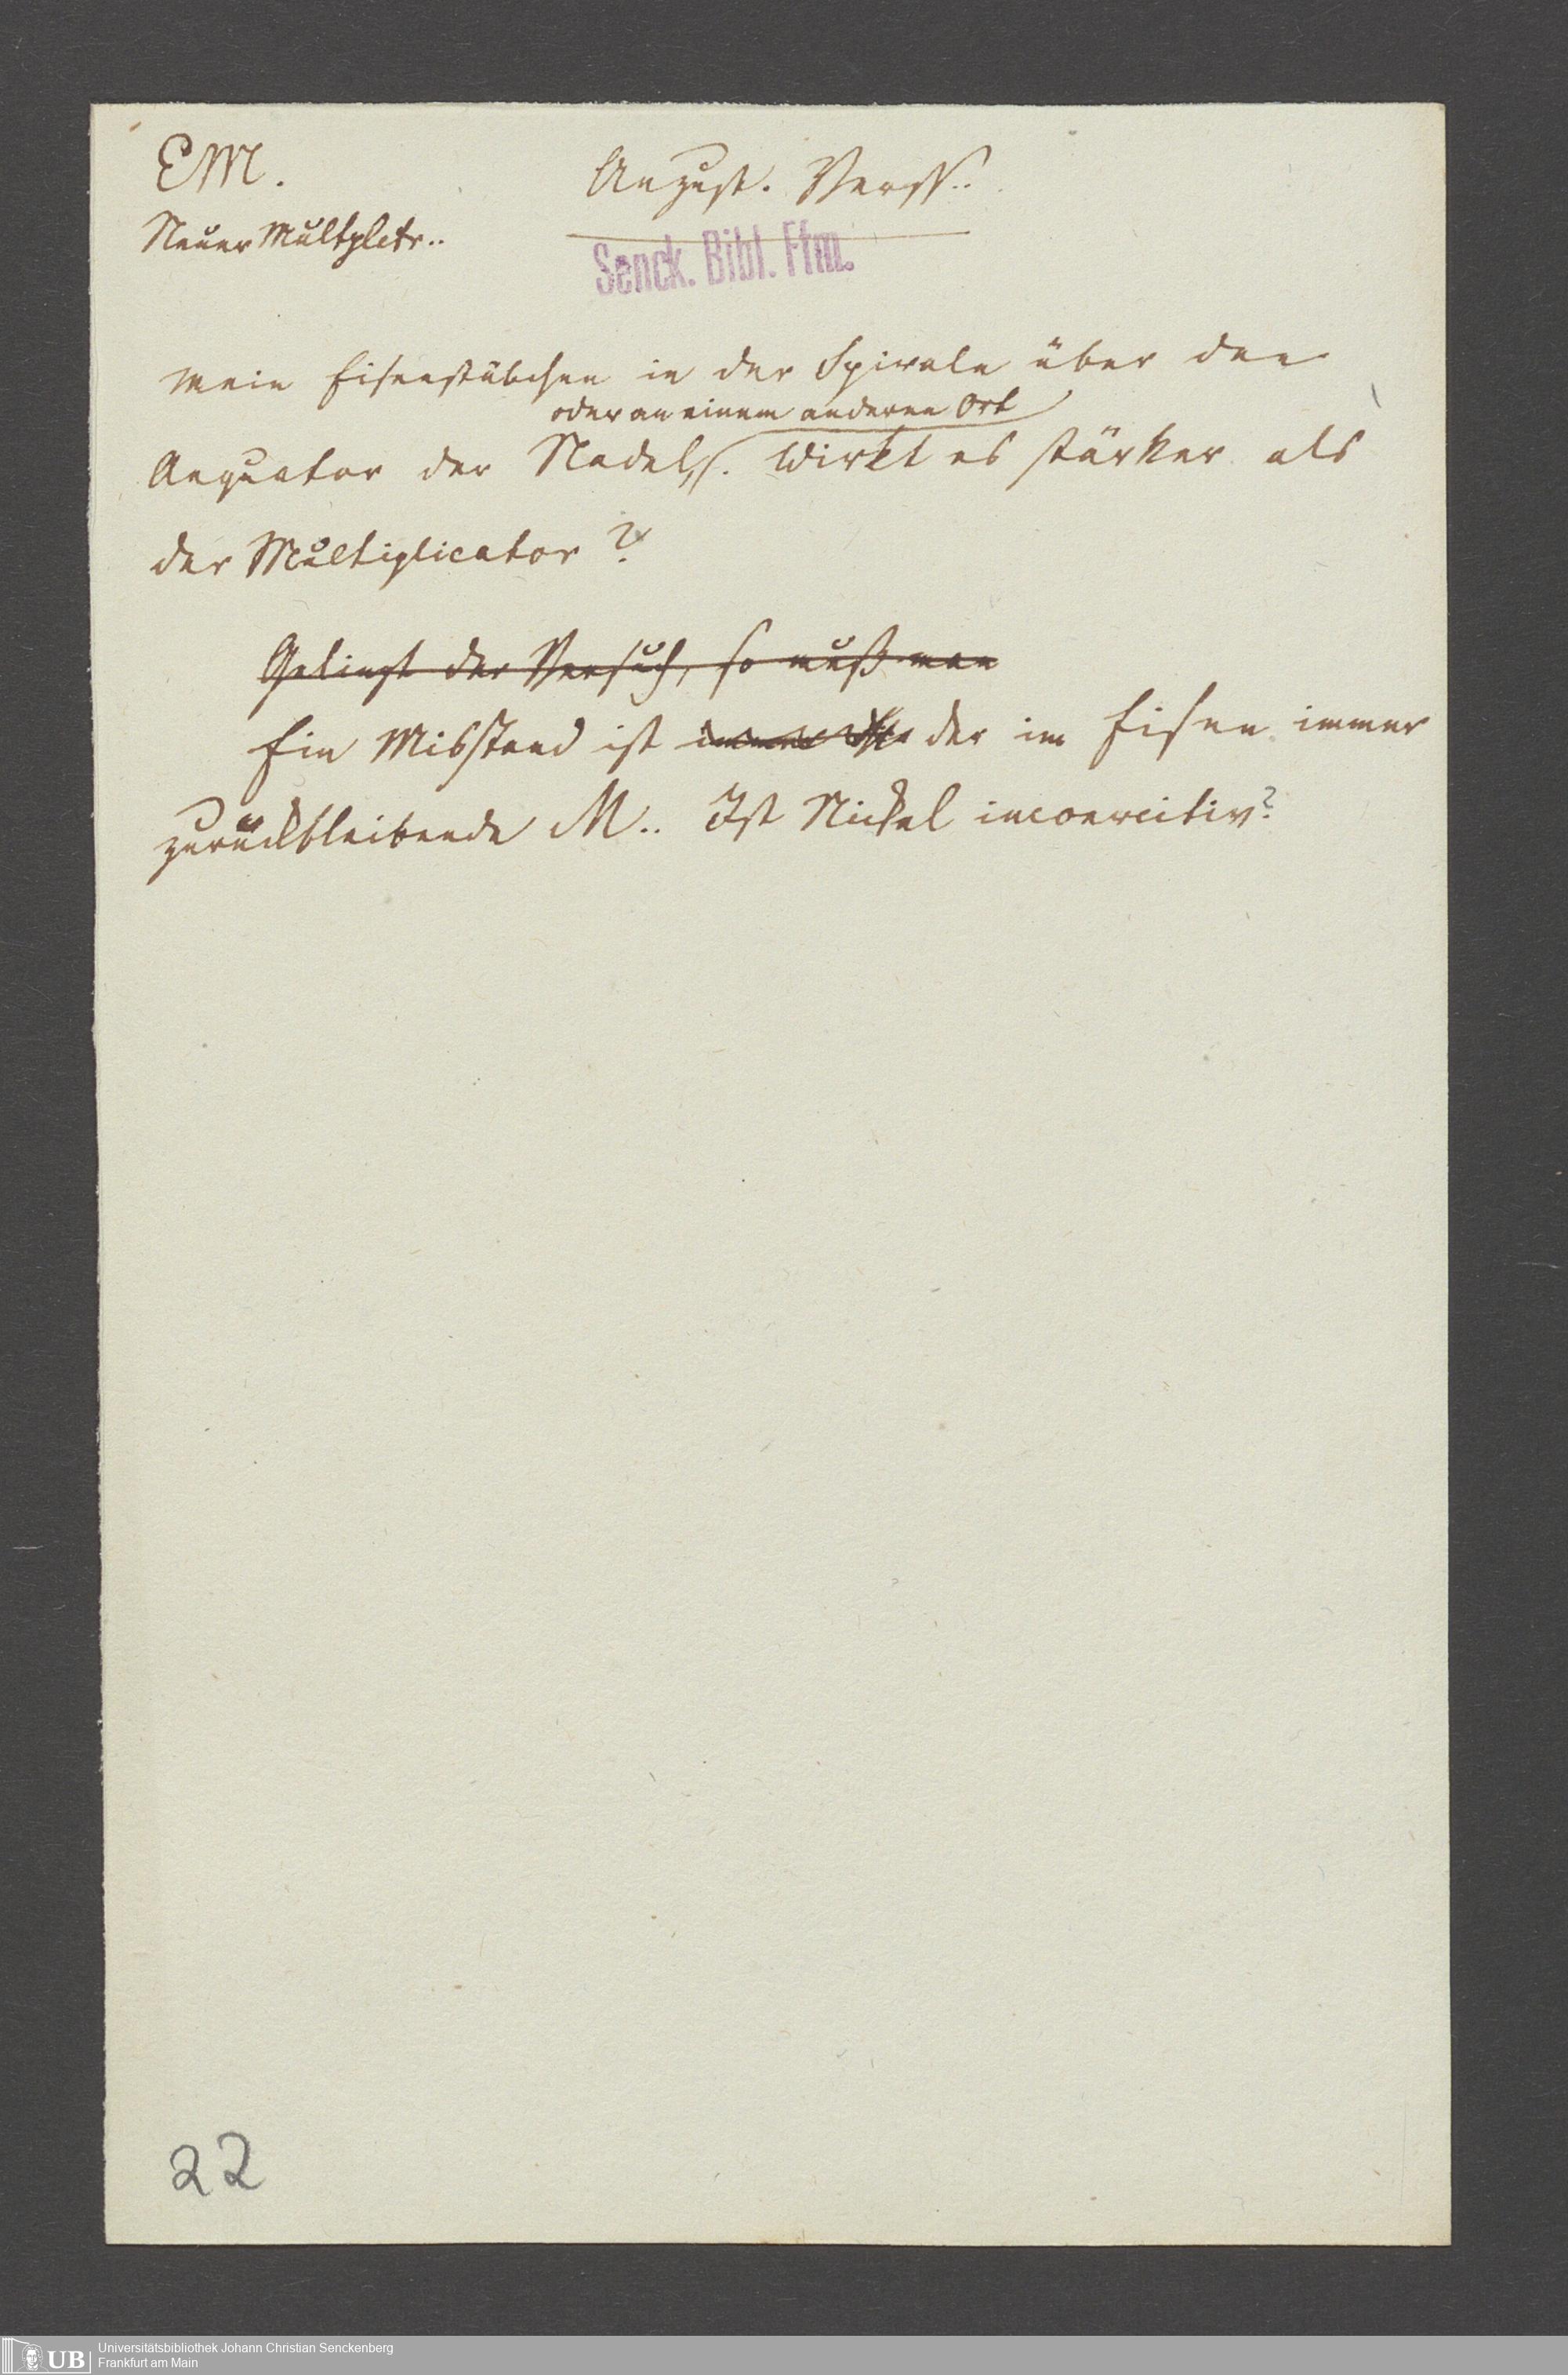 EM.
August. Verss..
Neuer Multpletr..
Senck. Bibl. Ffm.
Mein Eisenstäbchen in der Spirale über den
oder an einem anderen Ort
Aequator der Nadel,. Wirkt es stärker als
der Multiplicator?
Gelingt der Versuch, so muß man
Ein Misstand ist der im Eisen immer
zurückbleibende M.. Ist Nickel incoercitiv?
22
UB Universitätsbibliothek Johann Christian Senckenberg
Frankfurt am Main